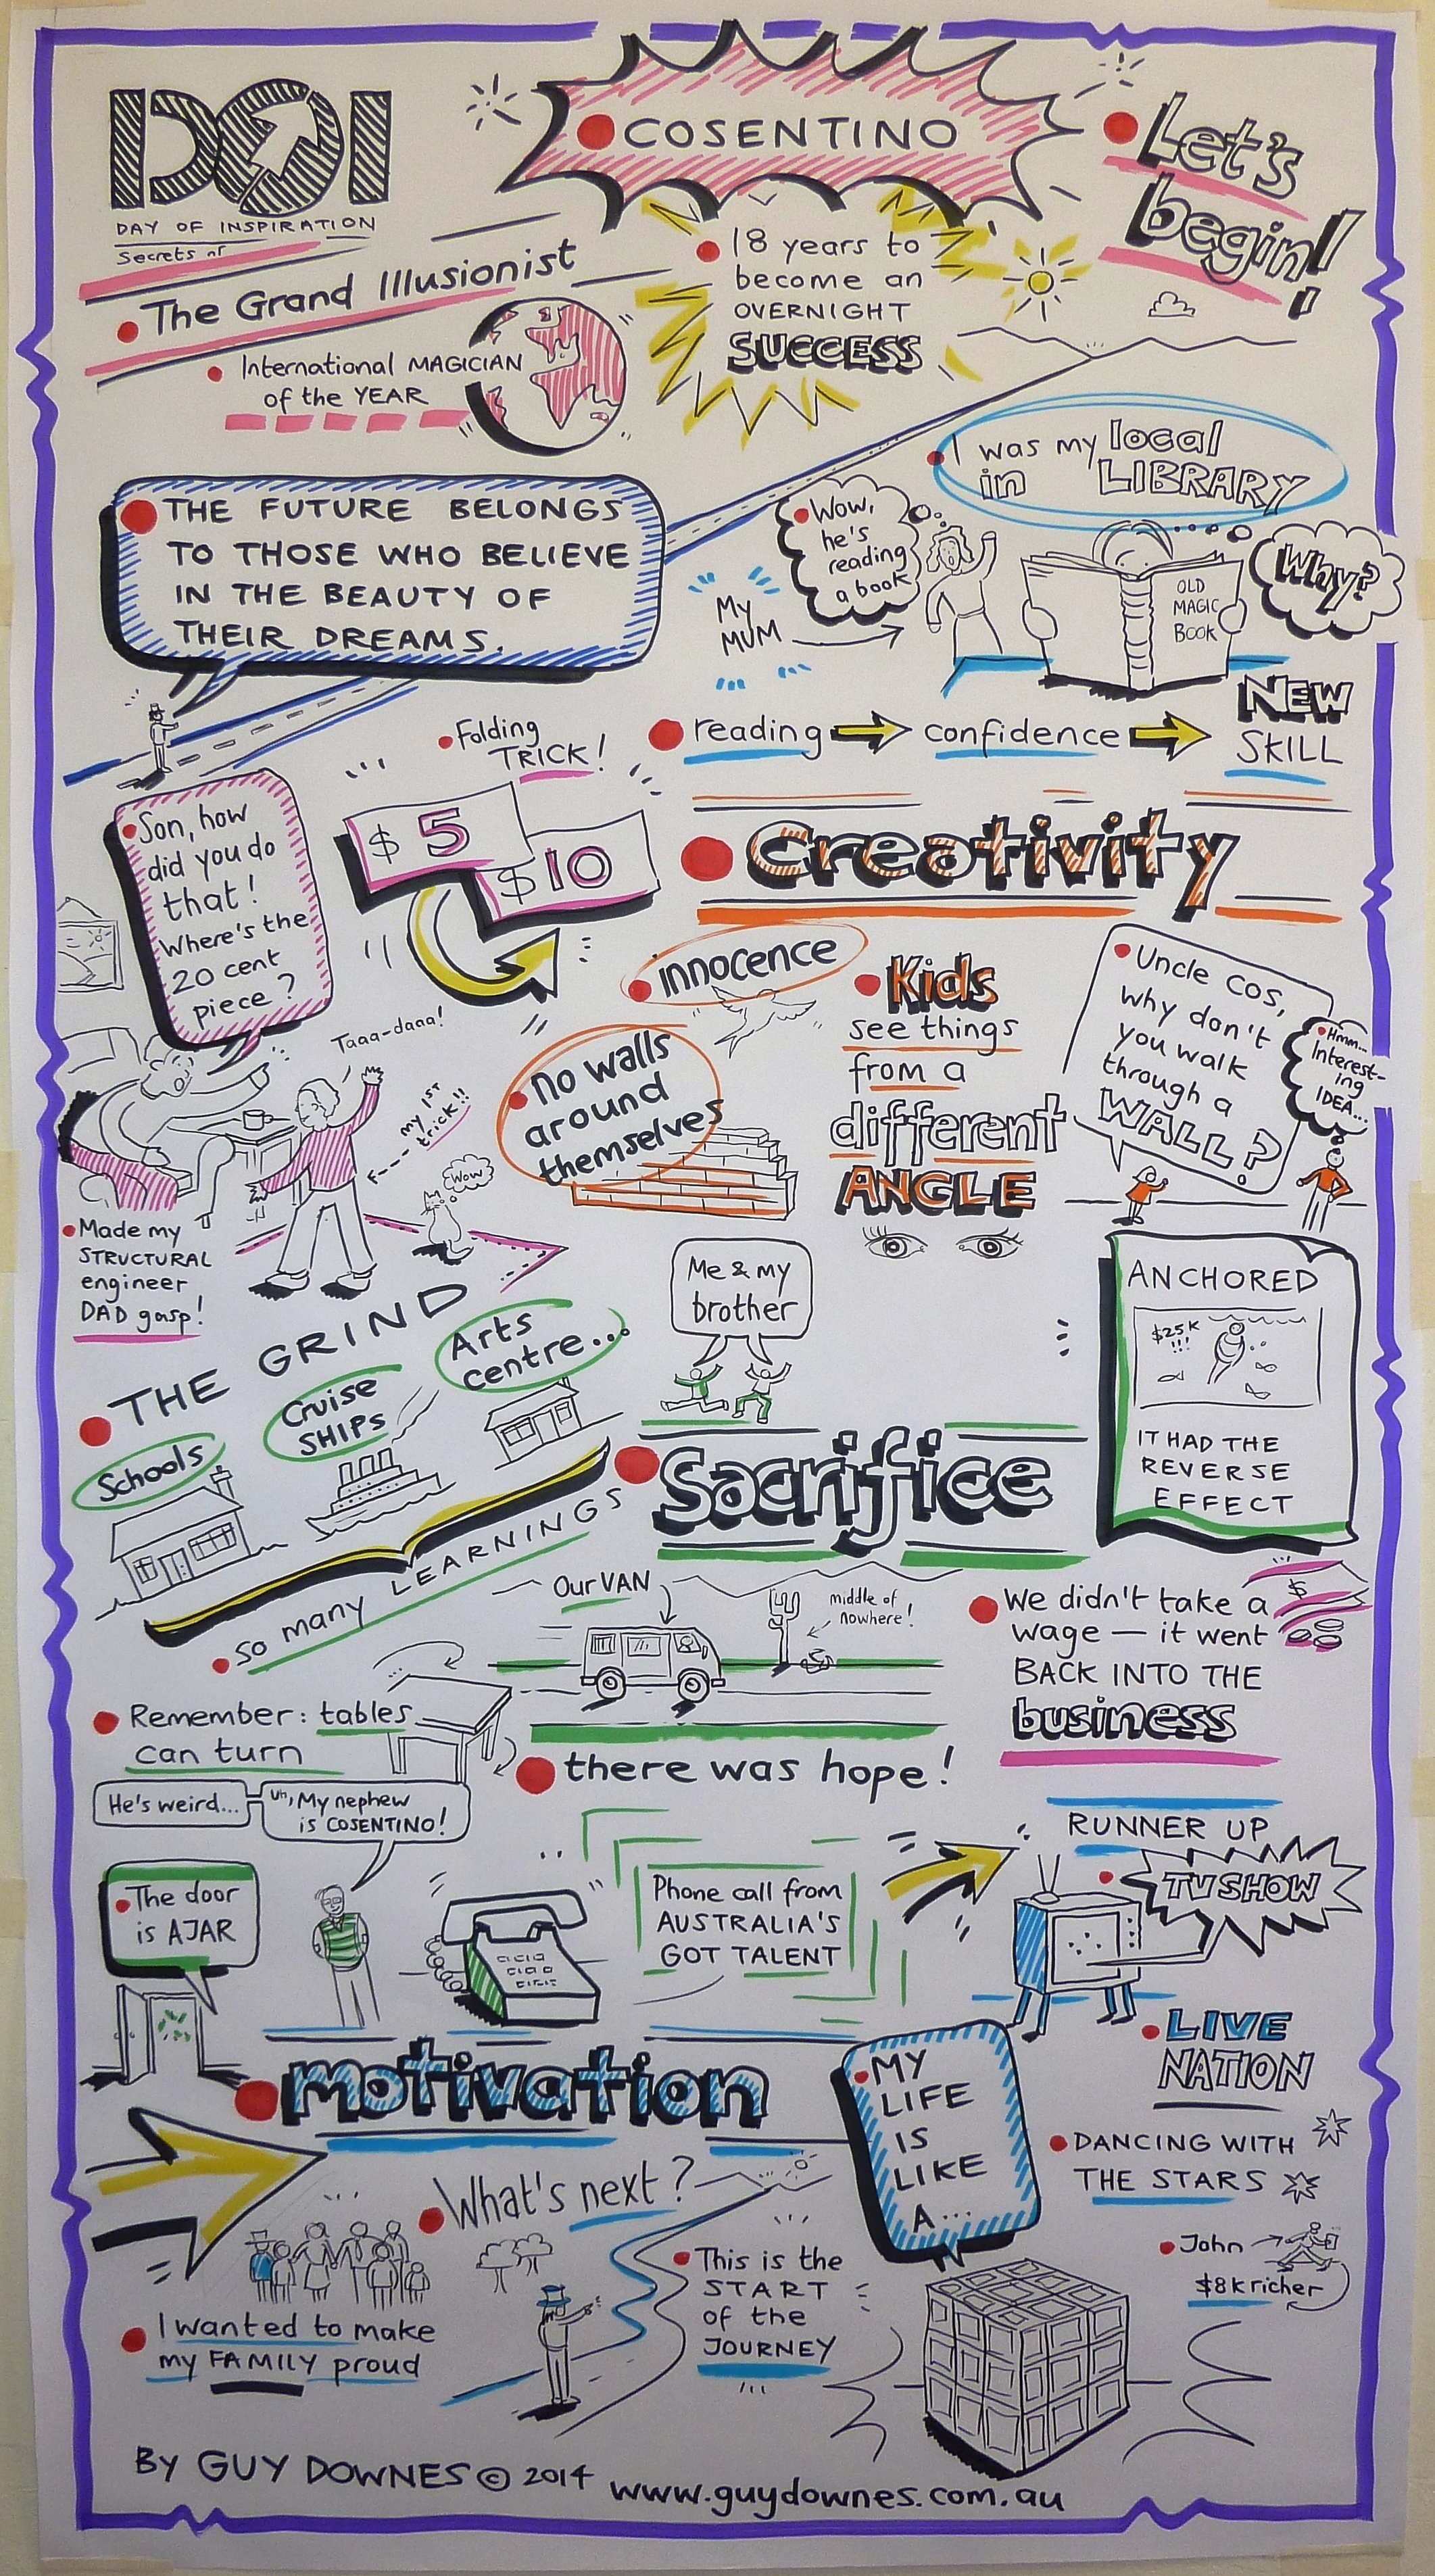 DOI
DAY OF INSPIRATION
Secrets of
The Grand Illusionist
International MAGICIAN
of the YEAR
COSENTINO
Let's
begin!
18 years to
become an
OVERNIGHT
SUCCESS
THE FUTURE BELONGS
TO THOSE WHO BELIEVE
IN THE BEAUTY OF
THEIR DREAMS.
I was my local
in LIBRARY
Wow,
he's
reading
a book
My
MUM
OLD
MAGIC
BOOK
Why?
reading
confidence
NEW
SKILL
Folding
TRICK!
$ 5
$ 10
Son, how
did you do
that!
Where's the
20 cent
piece?
Taaa-daaa!
my 1ST
trick!!
Wow
Made my
STRUCTURAL
engineer
DAD gasp!
Creativity
innocence
no walls
around
themselves
Kids
see things
from a
different
ANGLE
Uncle COS,
why don't
you walk
through a
WALL?
Hmm...
Interest-
ing
IDEA...
THE GRIND
Schools
Cruise
SHIPS
Arts
centre...
so many LEARNINGS
Me & my
brother
Sacrifice
ANCHORED
$25K
!!!
IT HAD THE
REVERSE
EFFECT
Our VAN
middle of
nowhere!
We didn't take a
wage — it went
BACK INTO THE
business
Remember: tables
can turn
there was hope!
He's weird...
Uh, My nephew
is COSENTINO!
The door
is AJAR
Phone call from
AUSTRALIA'S
GOT TALENT
RUNNER UP
TV SHOW
motivation
MY
LIFE
IS
LIKE
A...
LIVE
NATION
DANCING WITH
THE STARS
John
$8K richer
What's next?
I wanted to make
my FAMILY proud
This is the
START
of the
JOURNEY
BY GUY DOWNES © 2014
www.guydownes.com.au